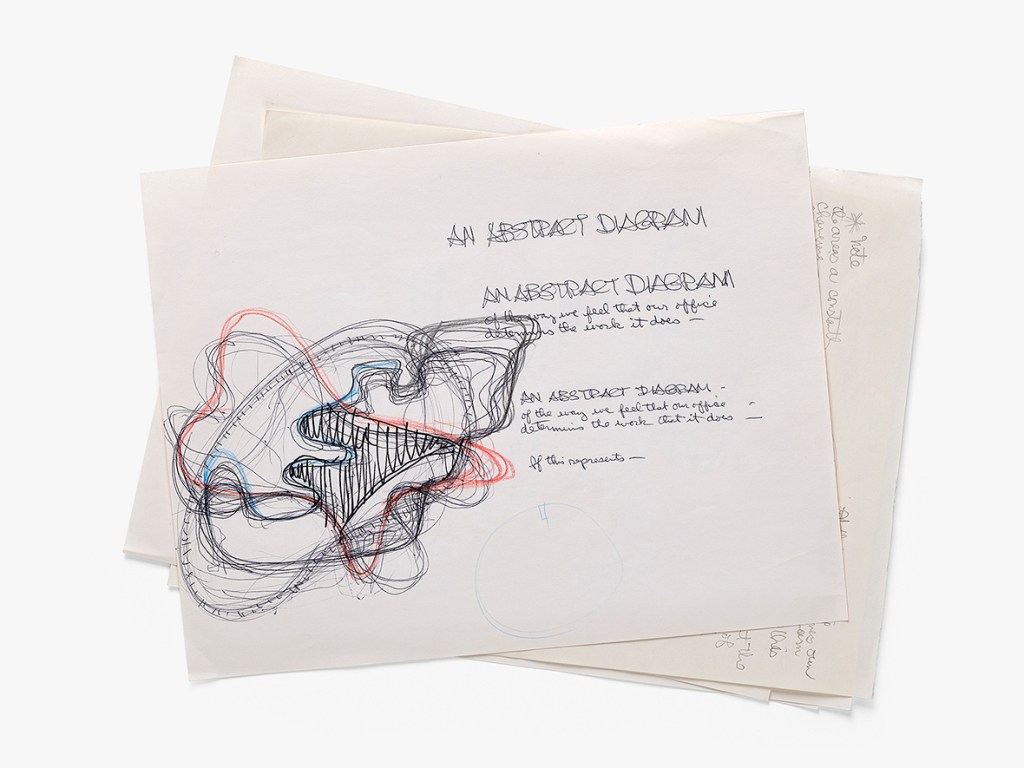 AN ABSTRACT DIAGRAM
AN ABSTRACT DIAGRAM
of the way we feel that our office
determins the work it does —
AN ABSTRACT DIAGRAM —
of the way we feel that our office —
determins the work that it does —
If this represents —
* Note
the areas a constatt